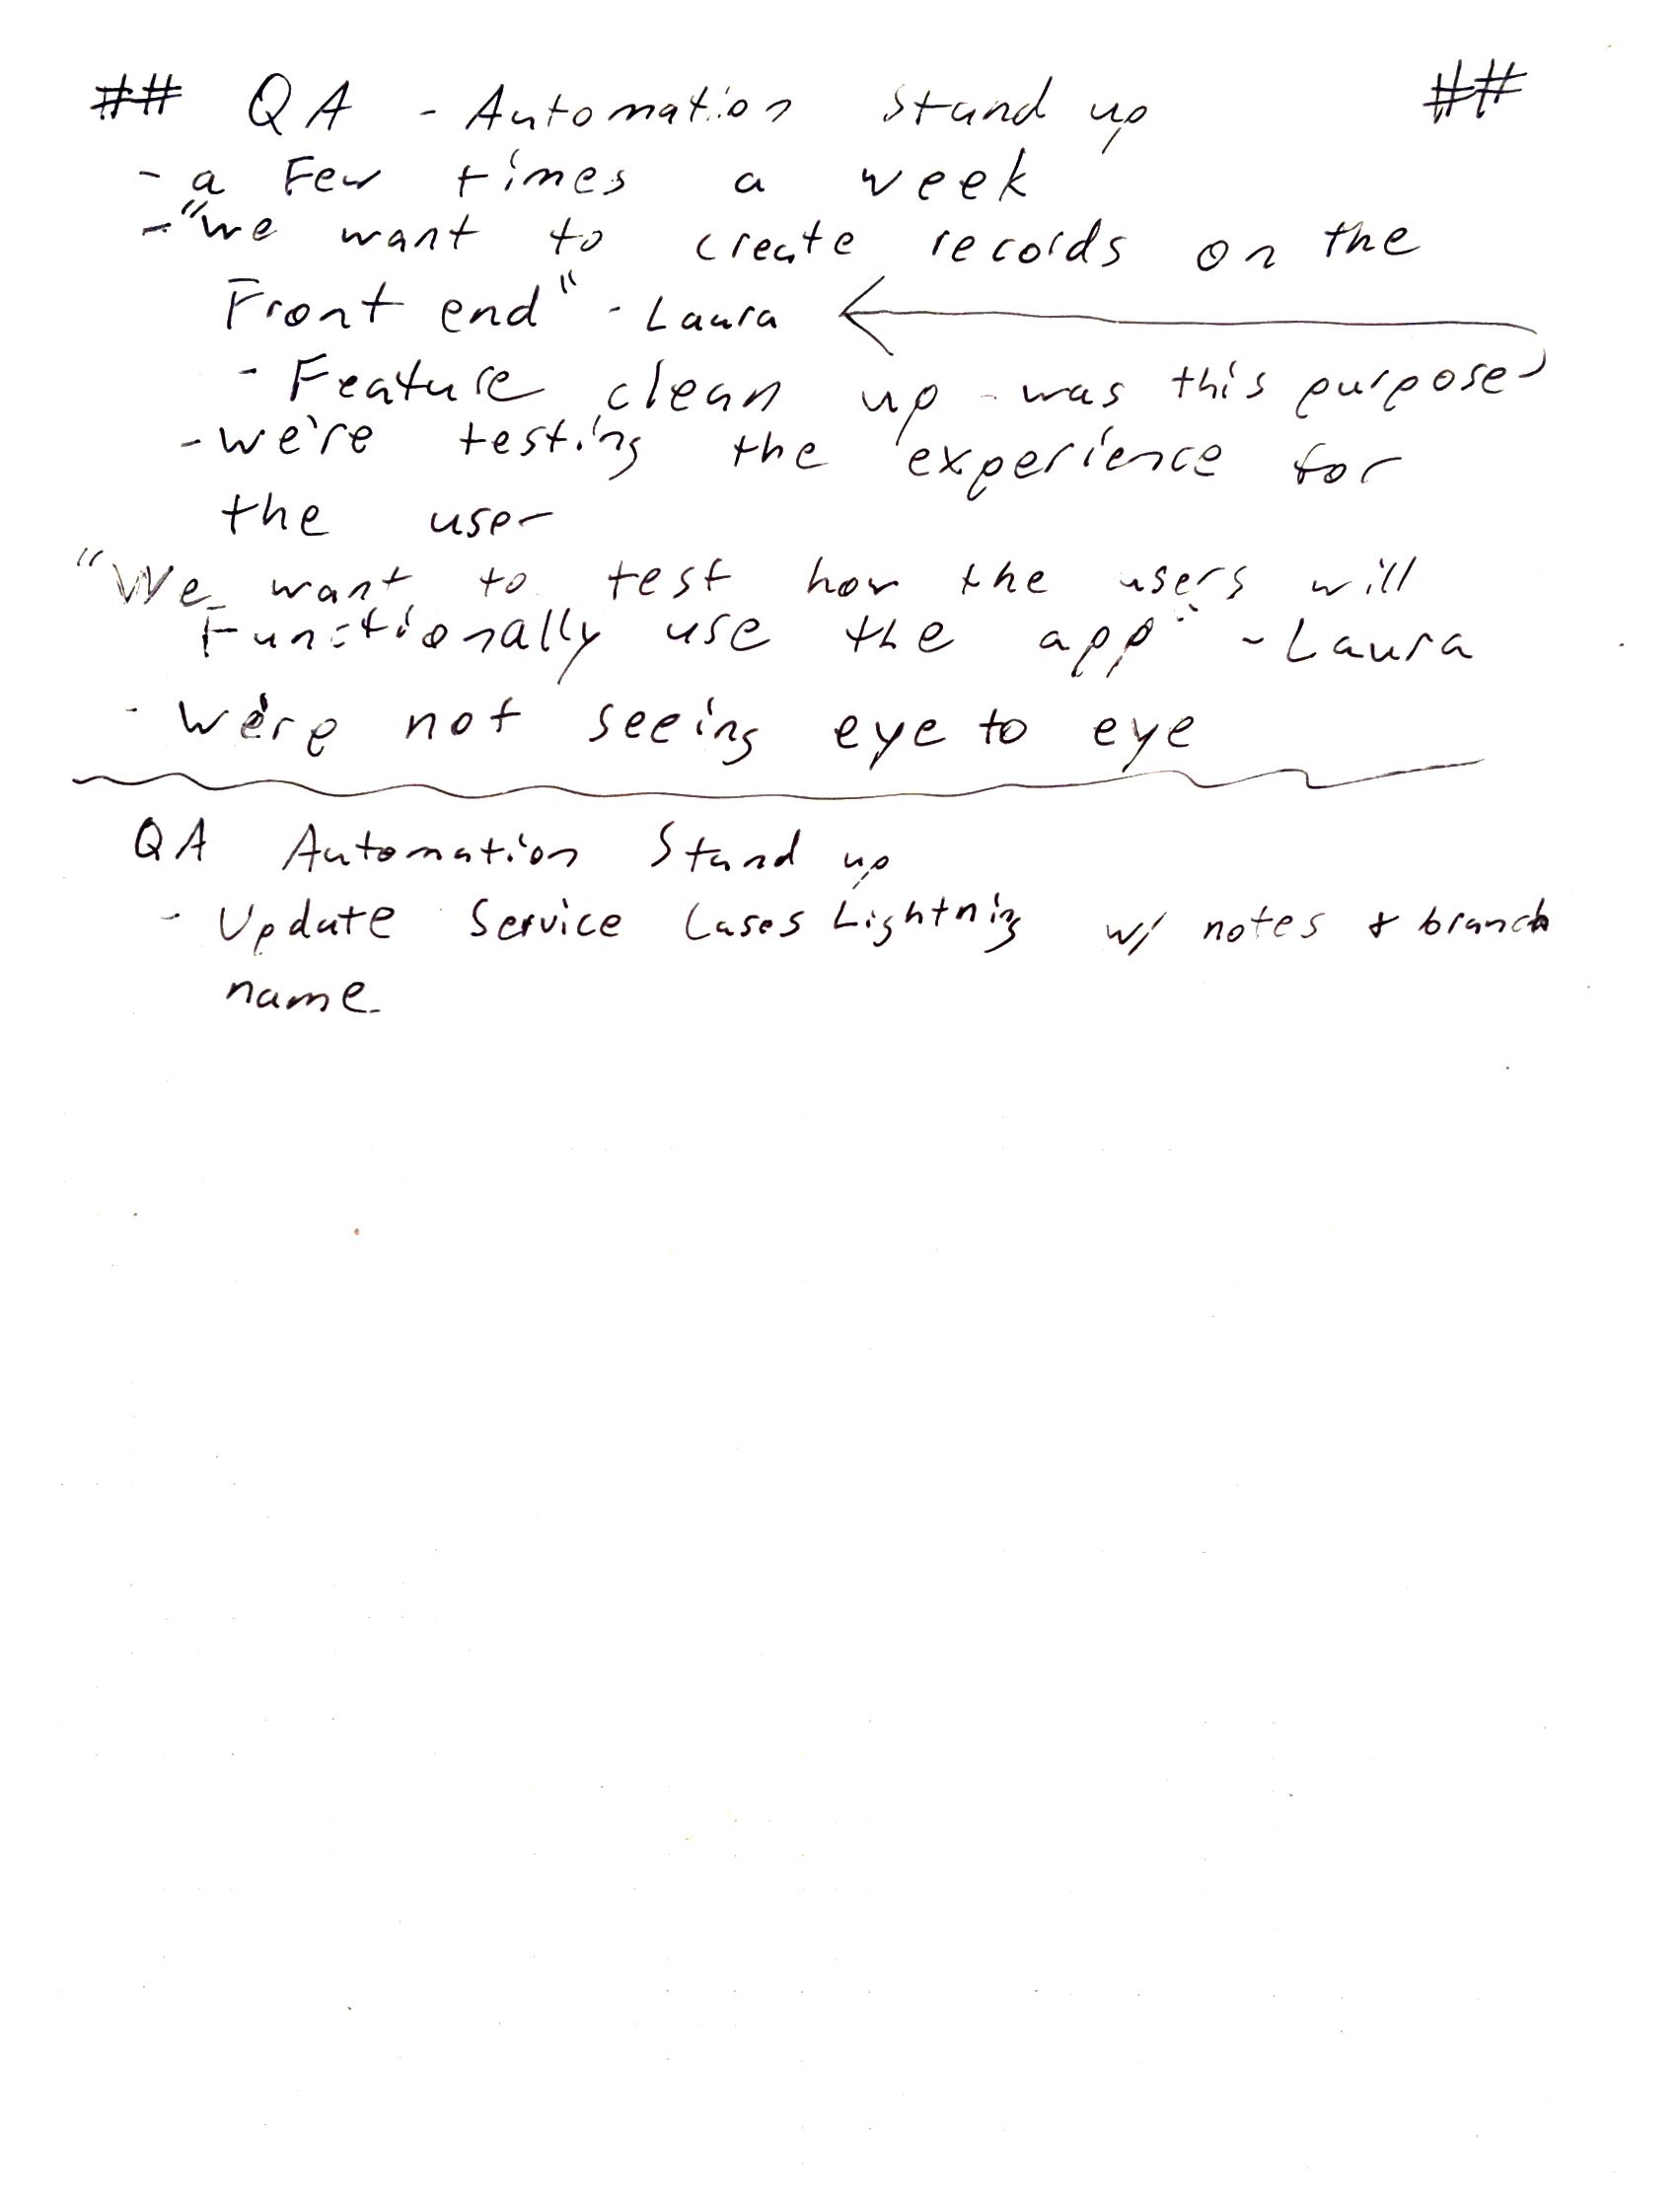 ## QA - Automation Stand up ##
- a Few times a week
- "we want to create records on the
Front end" - Laura
- Feature clean up - was this purpose
- we're testing the experience for
the user
"We want to test how the users will
Functionally use the app" - Laura
- We're not seeing eye to eye
QA Automation Stand up
- Update Service Cases Lightning w/ notes & branch
name